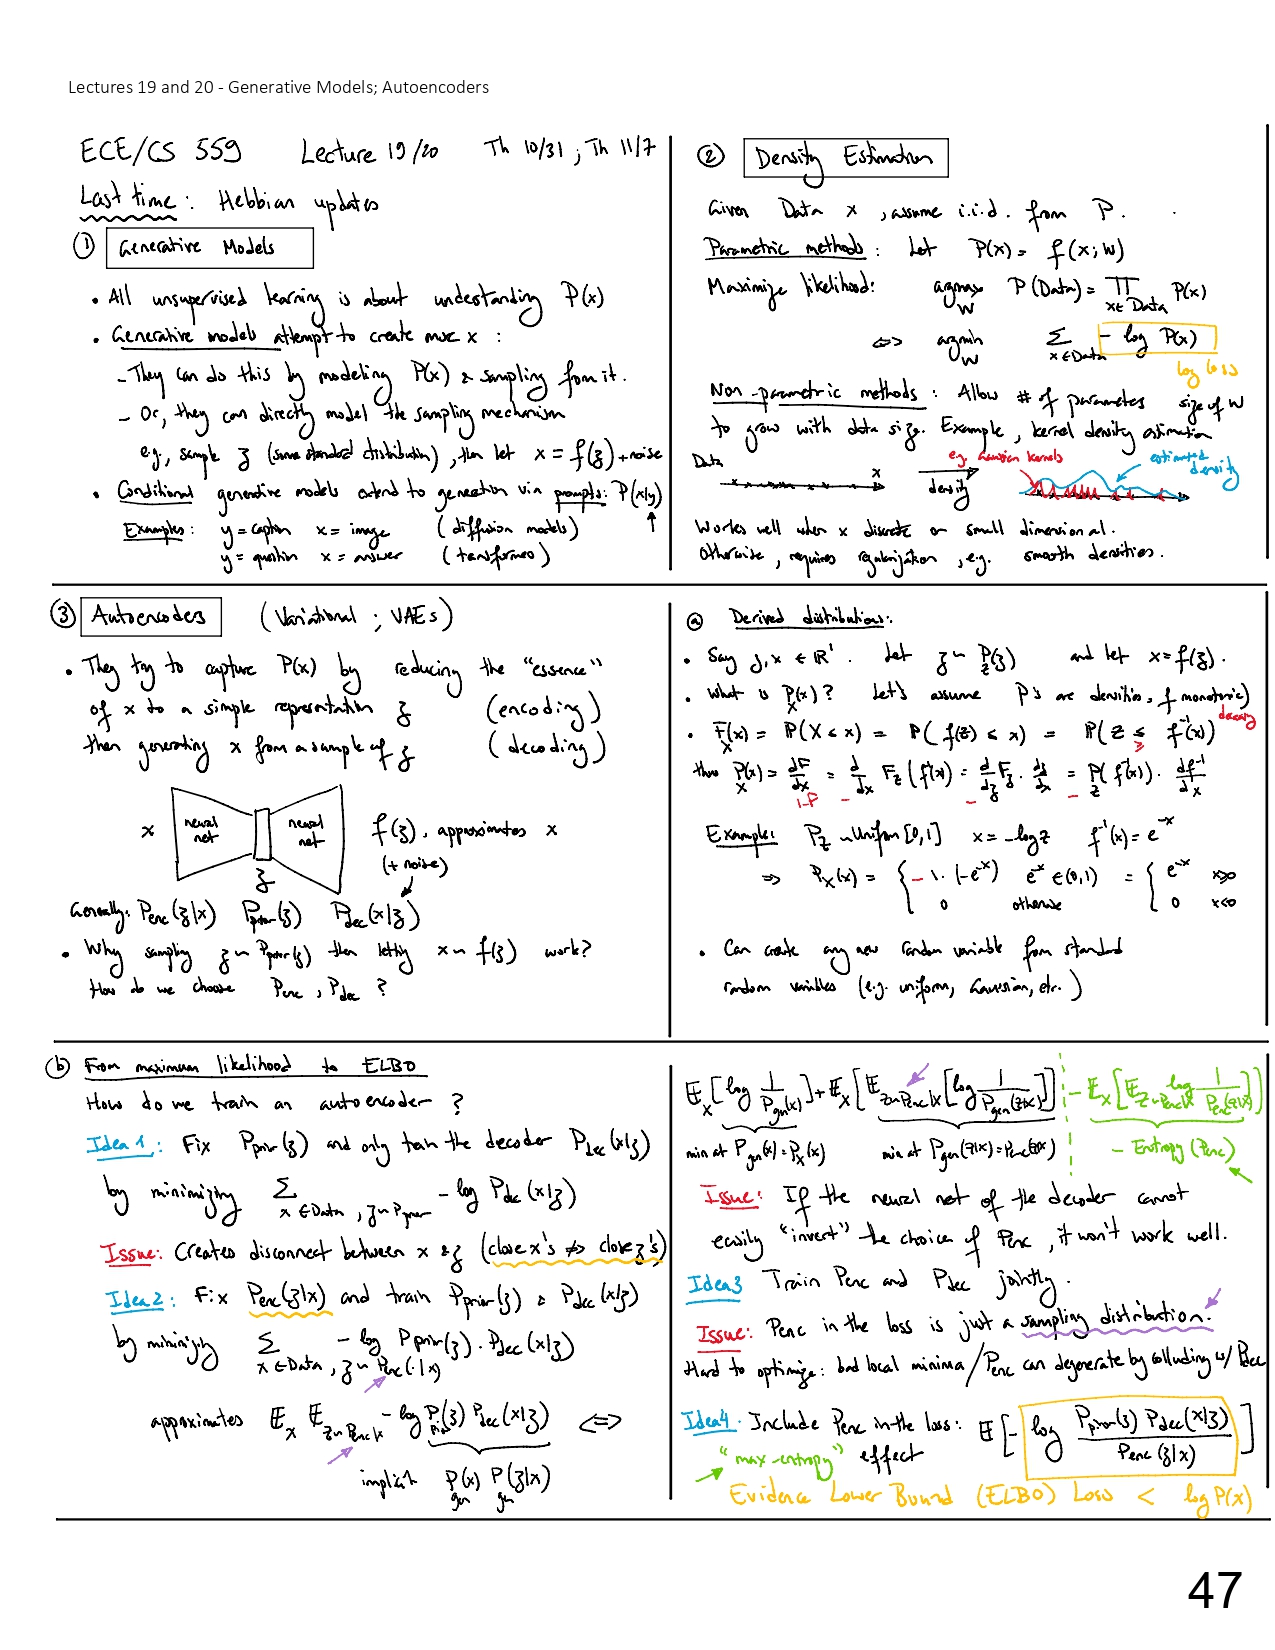 Lectures 19 and 20 - Generative Models; Autoencoders
ECE/CS 559 Lecture 19/20 Th 10/31 ; Th 11/7
Last time : Hebbian updates
① Generative Models
• All unsupervised learning is about understanding P(x)
• Generative models attempt to create more x :
- They can do this by modeling P(x) & sampling from it.
- Or, they can directly model the sampling mechanism
e.g., sample z (some standard distribution), then let x = f(z) + noise
• Conditional generative models extend to generation via prompts: P(x|y)
Examples: y = caption x = image (diffusion models)
y = question x = answer (transformers)
② Density Estimation
Given Data x , assume i.i.d. from P.
Parametric methods : Let P(x) = f(x; W)
Maximize likelihood: argmax W P(Data) = ∏ x∈Data P(x)
⇔ argmin W Σ x∈Data - log P(x)
log loss
Non-parametric methods : Allow # of parameters size of W
to grow with data size. Example, kernel density estimation
Data x density e.g. Gaussian kernels estimated density
Works well when x discrete or small dimensional.
Otherwise, requires regularization, e.g. smooth densities.
③ Autoencoders (Variational ; VAEs)
• They try to capture P(x) by reducing the "essence"
of x to a simple representation z (encoding)
then generating x from a sample of z (decoding)
x neural net z neural net f(z), approximates x
(+ noise)
Generally: Penc(z|x) Pprior(z) Pdec(x|z)
• Why sampling z ~ Pprior(z) then letting x ~ f(z) work?
How do we choose Penc , Pdec ?
ⓐ Derived distributions:
• Say z, x ∈ ℝ¹. Let z ~ P_Z(z) and let x = f(z).
• What is P_X(x)? Let's assume P's are densities, f monotonic)
• F_X(x) = P(X ≤ x) = P( f(Z) ≤ x) = P( Z ≤ f⁻¹(x))
≥
thus P_X(x) = dF/dx = d/dx F_Z( f⁻¹(x)) = d/dz F_Z · dz/dx = P_Z( f⁻¹(x)) · df⁻¹/dx
1-F - - -
Example: P_Z ~ Uniform[0,1] x = -log z f⁻¹(x) = e⁻ˣ
⇒ P_X(x) = { - 1 · (-e⁻ˣ) e⁻ˣ ∈ (0,1) = { e⁻ˣ x>0
0 otherwise 0 x<0
• Can create any new random variable from standard
random variables (e.g. uniform, Gaussian, etc.)
ⓑ From maximum likelihood to ELBO
How do we train an autoencoder ?
Idea 1 : Fix Pprior(z) and only train the decoder Pdec(x|z)
by minimizing Σ x∈Data, z~Pprior - log Pdec(x|z)
Issue: Creates disconnect between x & z (close x's ⇏ close z's)
Idea 2 : Fix Penc(z|x) and train Pprior(z) & Pdec(x|z)
by minimizing Σ x∈Data, z~Penc(·|x) - log Pprior(z) · Pdec(x|z)
approximates 𝔼x 𝔼z~Penc|x - log Pprior(z) Pdec(x|z) ⇔
implicit Pgen(x) Pgen(z|x)
𝔼x[log 1/Pgen(x)] + 𝔼x[𝔼z~Penc|x[log 1/Pgen(z|x)]] - 𝔼x[𝔼z~Penc|x log 1/Penc(z|x)]
min at Pgen(x) = Px(x) min at Pgen(z|x) = Penc(z|x) - Entropy (Penc)
Issue: If the neural net of the decoder cannot
easily "invert" the choice of Penc, it won't work well.
Idea3 Train Penc and Pdec jointly.
Issue: Penc in the loss is just a sampling distribution.
Hard to optimize: bad local minima / Penc can degenerate by colluding w/ Pdec
Idea4. Include Penc in the loss: 𝔼[- log Pprior(z) Pdec(x|z) / Penc(z|x)]
"max-entropy" effect
Evidence Lower Bound (ELBO) Loss < log P(x)
47